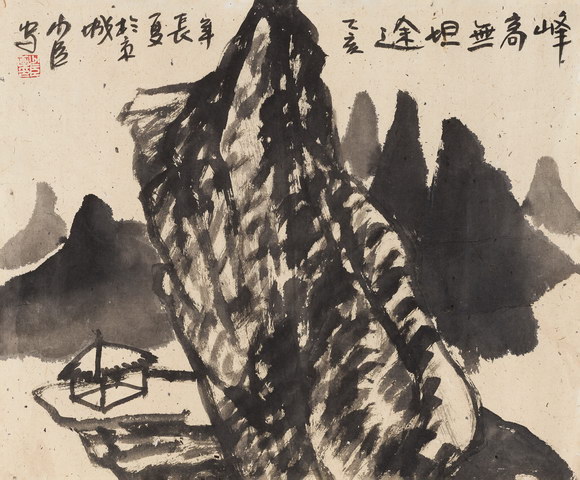 峰高無坦途
乙亥年長夏於京城少臣写